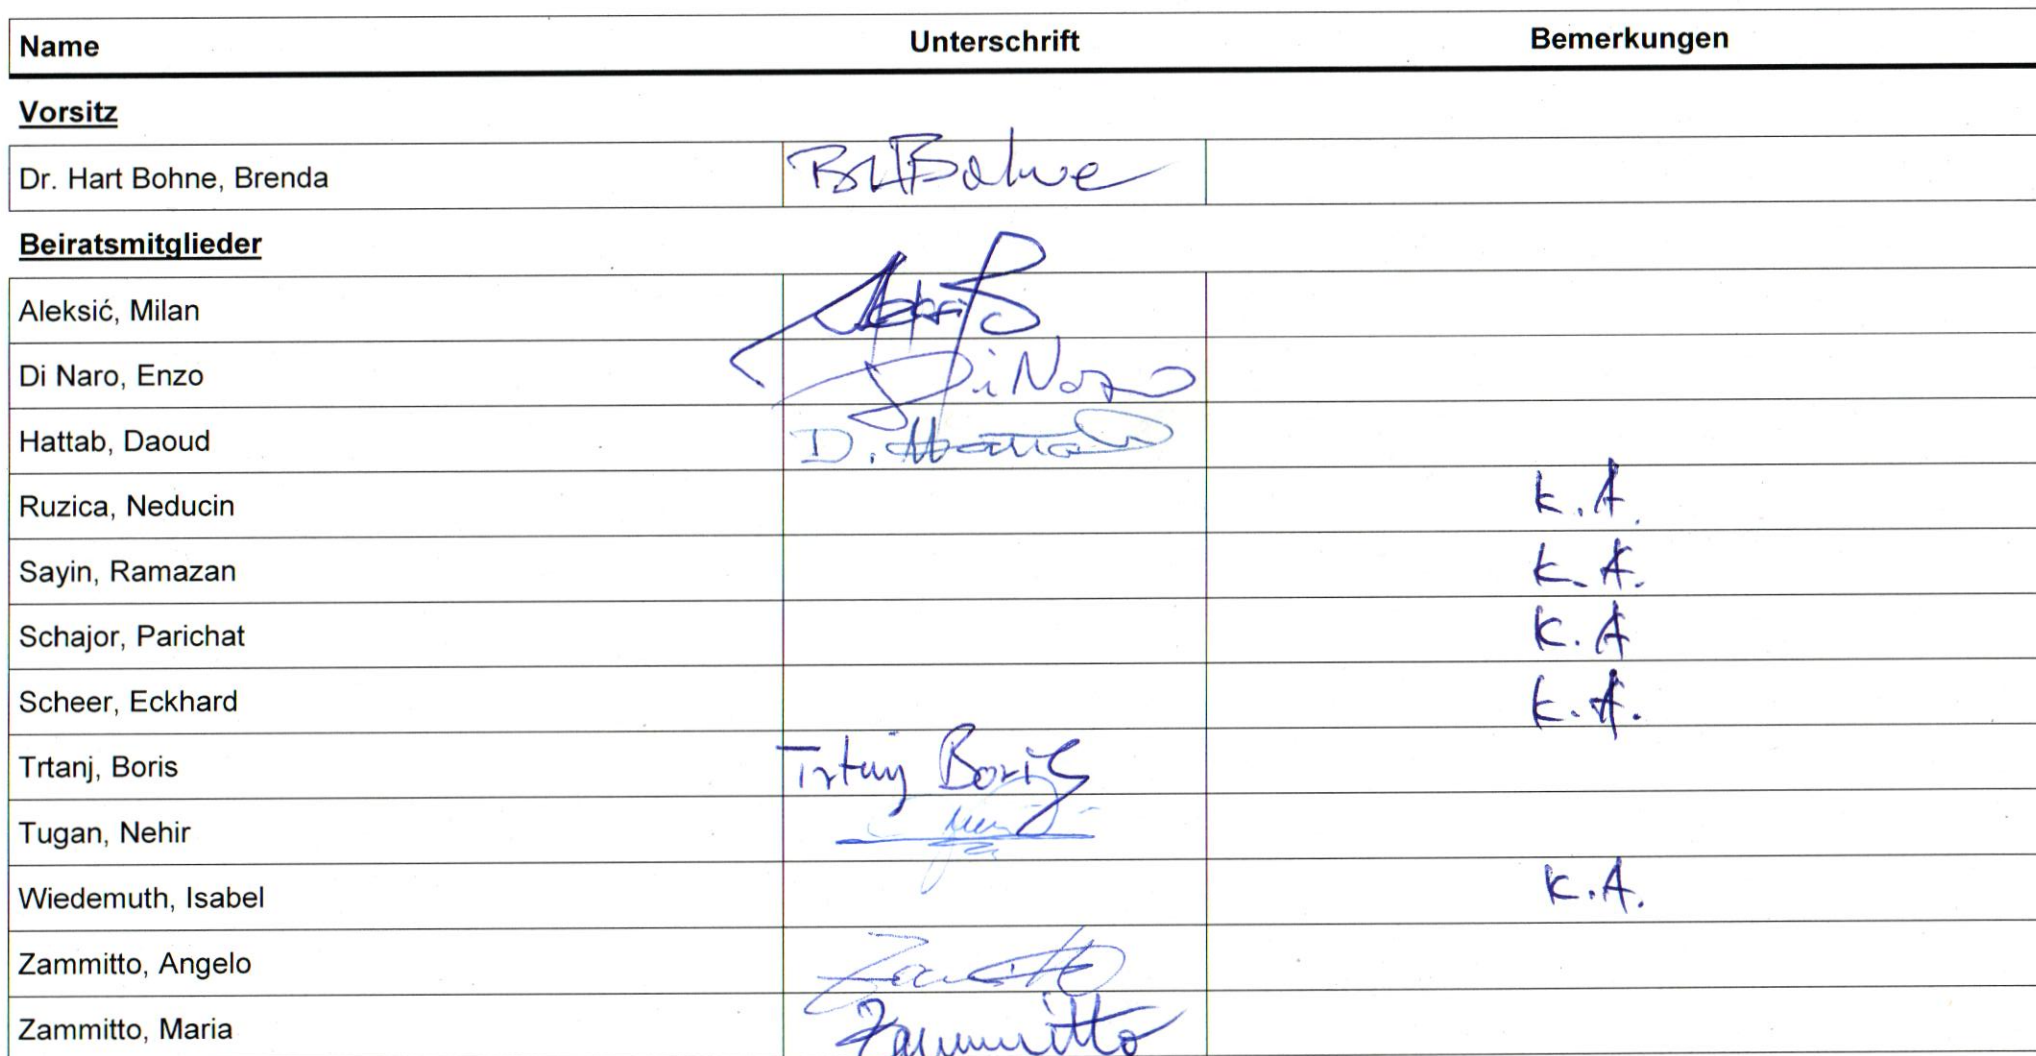 Name Unterschrift Bemerkungen
Vorsitz
Dr. Hart Bohne, Brenda BHBohne
Beiratsmitglieder
Aleksić, Milan
Di Naro, Enzo Di Naro
Hattab, Daoud D. Hattab
Ruzica, Neducin k.A.
Sayin, Ramazan k.A.
Schajor, Parichat k.A
Scheer, Eckhard k.A.
Trtanj, Boris Trtanj Boris
Tugan, Nehir
Wiedemuth, Isabel k.A.
Zammitto, Angelo
Zammitto, Maria Zammitto